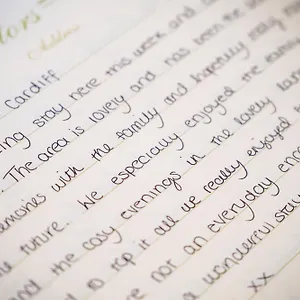 tors
Address
Cardiff
ing stay here this week and
. The area is lovely and has been the
emories with the family and hopefully many
future. We especially enjoyed the
and the cosy evenings in the lovely
to top it all we really enjoyed
are nor an everyday
a wonderful stay
xx